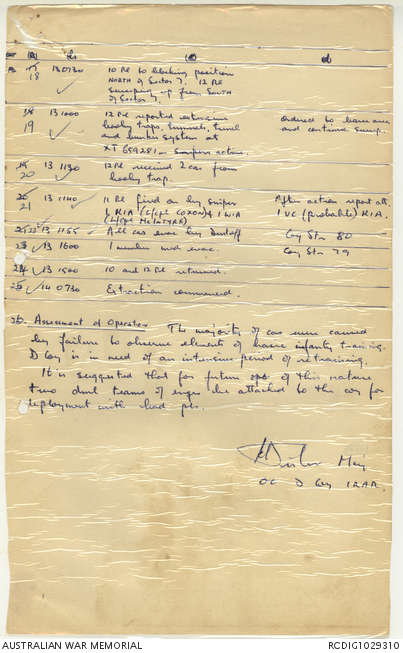 (a) (b) (c) (d)
17 18 130730 10 Pl to blocking position
NORTH of Sector 7. 12 Pl
sweeping up from SOUTH
of Sector 7.
18 19 131000 12 Pl reported extensive Ordered to
booby traps, tunnels, tunnel and continue sweep.
and bunker system at
XT 659281 - snipers active.
19 20 131130 12 Pl received 2 cas from
booby trap.
20 21 131140 11 Pl fired on by sniper After action report att.
1 KIA (L/Cpl COXON) & 1 WIA 1 VC (probable) KIA.
(L/Cpl McINTYRE)
22 131155 All cas evac by dustoff Coy Str 80
23 131600 1 member med evac. Coy Str 79
24 131500 10 and 12 Pl returned.
25 140730 Extraction commenced.
26. Assessment of Operation The majority of cas were caused
by failure to observe elements of basic infantry training.
D Coy is in need of an intensive period of retraining.
It is suggested that for future ops of this nature
two teams of engrs be attached to the coy for
deployment with lead pls.
Maj
OC D Coy 1RAR
AUSTRALIAN WAR MEMORIAL
RCDIG1029310